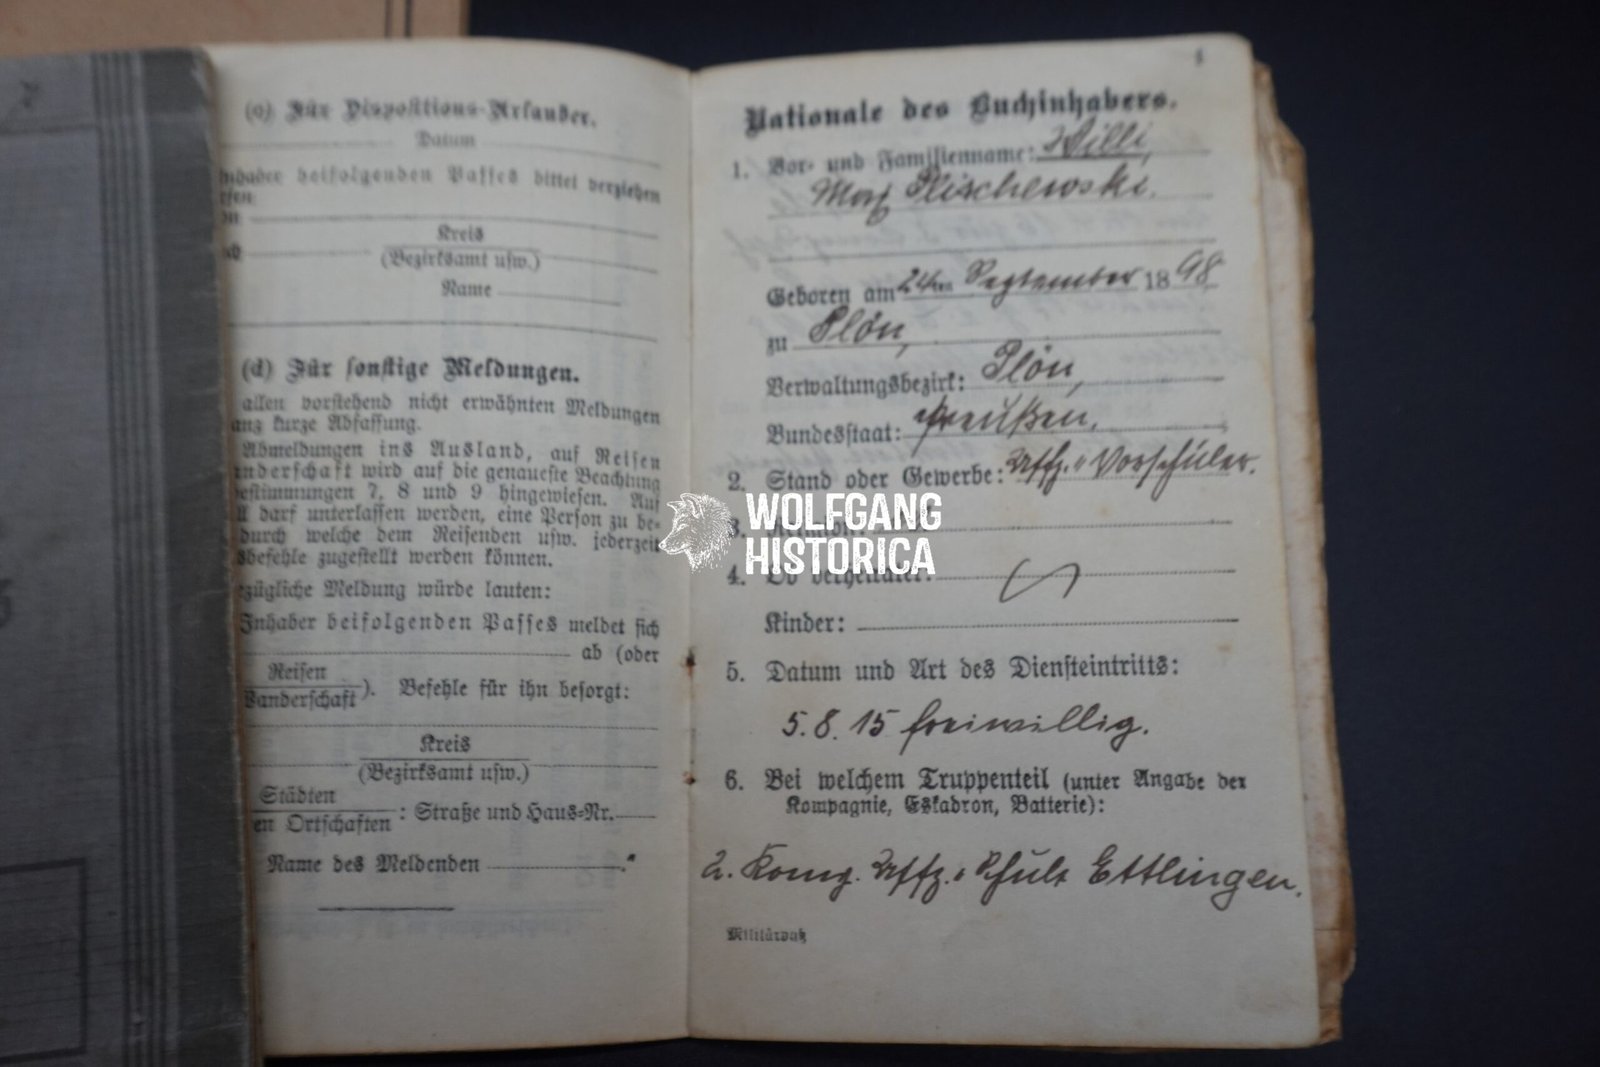 (c) Für Dispositions-Urlauber.
Datum
Inhaber beifolgenden Passes bittet verziehen
Kreis
(Bezirksamt usw.)
Name
(d) Für sonstige Meldungen.
allen vorstehend nicht erwähnten Meldungen
kurze Abfassung.
Abmeldungen ins Ausland, auf Reisen
wird auf die genaueste Beachtung
7, 8 und 9 hingewiesen. Auf
darf unterlassen werden, eine Person zu be-
durch welche dem Reisenden usw. jederzeit
zugestellt werden können.
Meldung würde lauten:
Inhaber beifolgenden Passes meldet sich
ab (oder
Reisen
Wanderschaft ). Befehle für ihn besorgt:
Kreis
(Bezirksamt usw.)
Städten
Ortschaften : Straße und Haus-Nr.
Name des Meldenden ."
1
Nationale des Buchinhabers.
1. Vor- und Familienname: Willi,
Max Plischewski.
Geboren am 24ten September 1898
zu Plön,
Verwaltungsbezirk: Plön,
Bundesstaat: Preußen.
2. Stand oder Gewerbe: Uffz.-Vorschüler.
3. Religion:
4. Ob verheiratet:
Kinder:
5. Datum und Art des Diensteintritts:
5. 8. 15 freiwillig.
6. Bei welchem Truppenteil (unter Angabe der
Kompagnie, Eskadron, Batterie):
2. Komp. Uffz.-Schule Ettlingen.
Militärpaß
WOLFGANG
HISTORICA